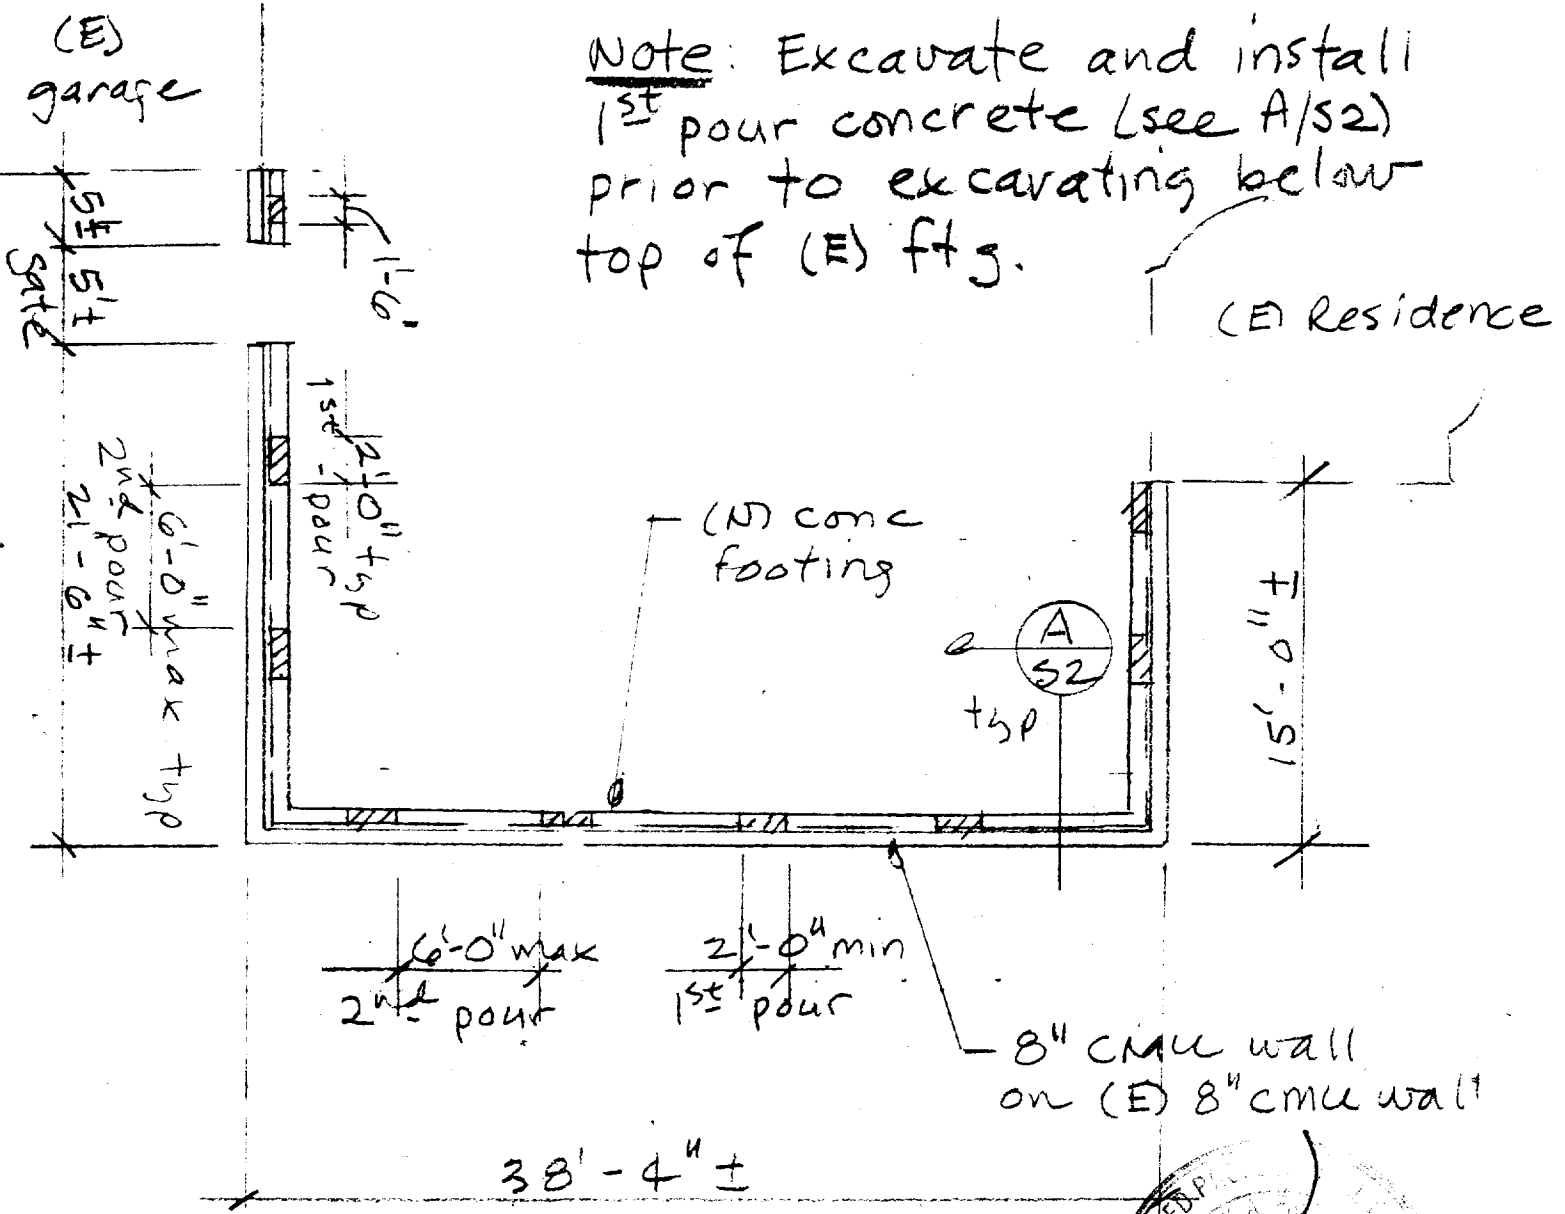 (E)
garage
Note: Excavate and install
1st pour concrete (see A/S2)
prior to excavating below
top of (E) ftg.
5'±
5'±
gate
1'-6"
(E) Residence
1st pour
2'-0" typ
2nd pour
6'-0" max typ
21'-6" ±
(N) conc
footing
A
S2
typ
15'-0" ±
6'-0" max
2nd pour
2'-0" min
1st pour
8" CMU wall
on (E) 8" cmu wall
38'-4" ±